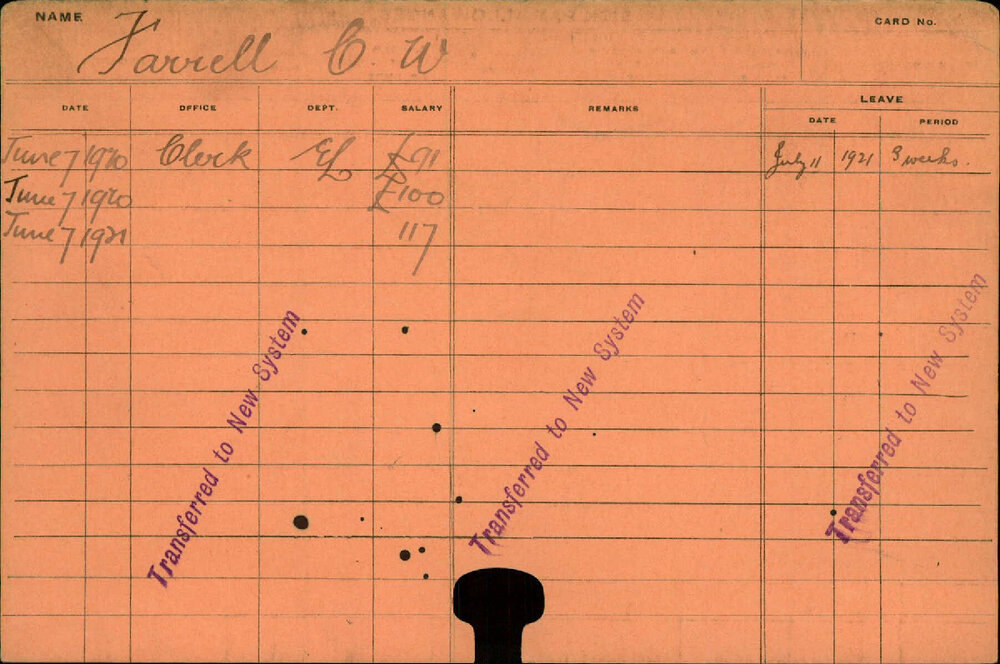 NAME
CARD No.
Farrell C. W
DATE OFFICE DEPT. SALARY REMARKS LEAVE
DATE PERIOD
June 7 1920 Clerk EL £91 July 11 1921 3 weeks.
June 7 1920 £100
June 7 1921 117
Transferred to New System
Transferred to New System
Transferred to New System